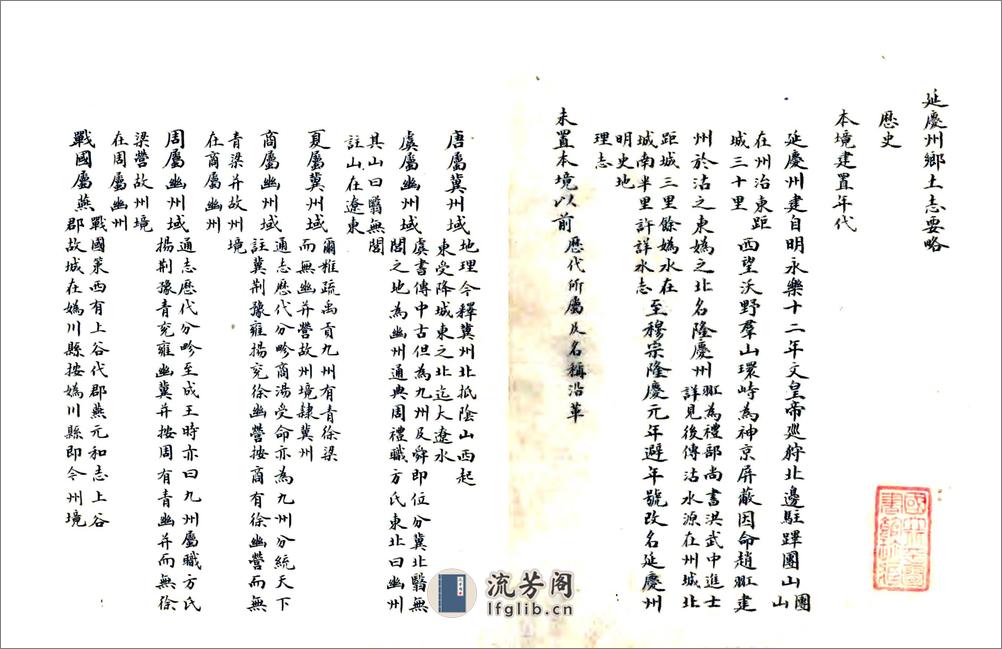 延慶州鄉土志要略
歷史
本境建置年代
延慶州建自明永樂十二年文皇帝巡狩北邊駐蹕團山團
山
在州治東距
城三十里
西望沃野羣山環峙為神京屏蔽因命趙羾建
州於沽之東媯之北名隆慶州
羾為禮部尚書洪武中進士
詳見後傳沽水源在州城北
距城三里餘媯水在
城南半里許詳水志
至穆宗隆慶元年避年號改名延慶州
明史地
理志
未置本境以前歷代所屬及名稱沿革
唐屬冀州域
地理今釋冀州北抵陰山西起
東受降城東之北迄大遼水
虞屬幽州域
虞書傳中古但為九州及舜即位分冀北醫無
閭之地為幽州通典周禮職方氏東北曰幽州
其山曰醫無閭
註山在遼東
夏屬冀州域
爾雅疏禹貢九州有青徐梁
而無幽并營故州境隸冀州
商屬幽州域
通志歷代分畛商湯受命亦為九州分統天下
註冀荊豫雍揚兗徐幽營按商有徐幽營而無
青梁并故州境
在商屬幽州
周屬幽州域
通志歷代分畛至成王時亦曰九州屬職方氏
揚荊豫青兗雍幽冀并按周有青幽并而無徐
梁營故州境
在周屬幽州
戰國屬燕
戰國策西有上谷代郡燕元和志上谷
郡故城在媯川縣按媯川縣即今州境
流芳阁
lfglib.cn